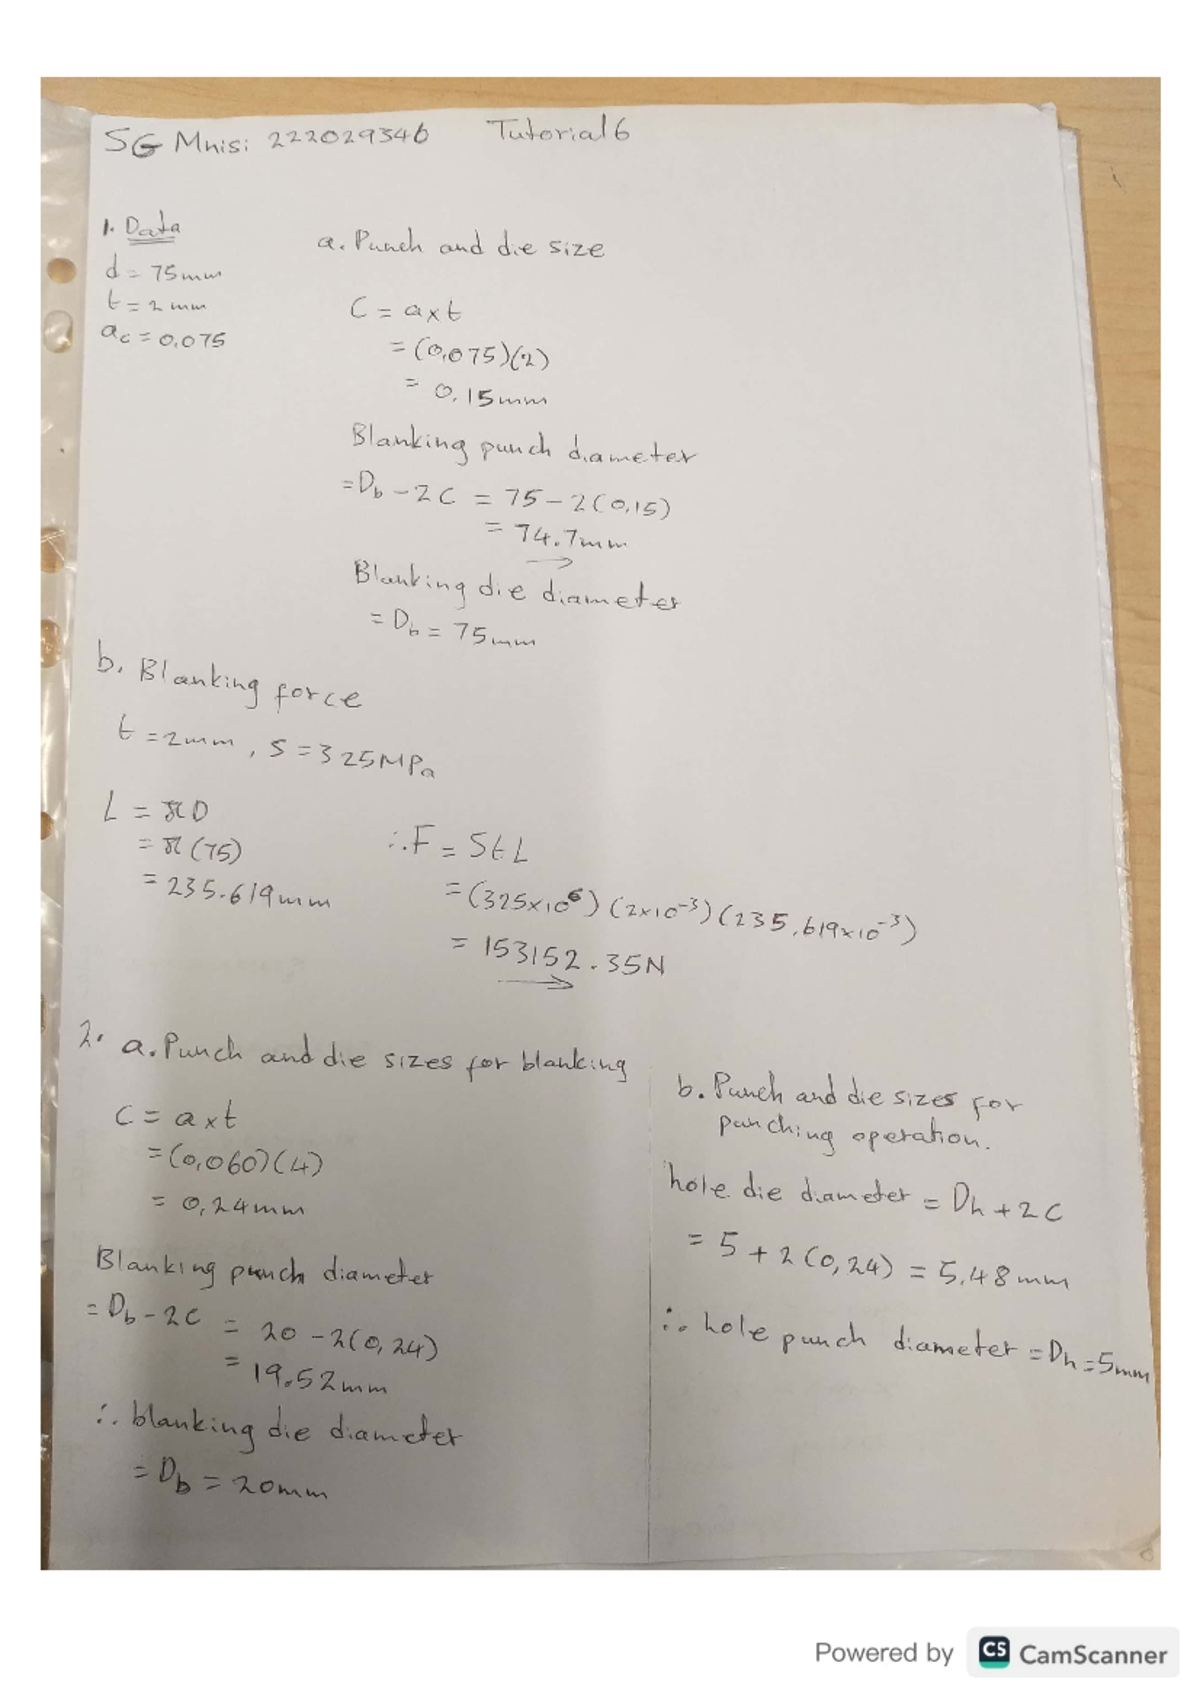 SG Mnisi 222029346 Tutorial 6
1. Data
d = 75mm
t = 2 mm
ac = 0,075
a. Punch and die size
C = a x t
= (0,075)(2)
= 0.15mm
Blanking punch diameter
= Db - 2C = 75 - 2(0,15)
= 74.7mm
Blanking die diameter
= Db = 75mm
b. Blanking force
t = 2mm, S = 325MPa
L = πD
= π(75)
= 235.619mm
∴ F = StL
= (325x10⁶)(2x10⁻³)(235,619x10⁻³)
= 153152.35N
2. a. Punch and die sizes for blanking
C = a x t
= (0,060)(4)
= 0,24mm
Blanking punch diameter
= Db - 2C = 20 - 2(0,24)
= 19.52mm
∴ blanking die diameter
= Db = 20mm
b. Punch and die sizes for
punching operation.
hole die diameter = Dh + 2C
= 5 + 2(0,24) = 5,48mm
∴ hole punch diameter = Dh = 5mm
Powered by CS CamScanner